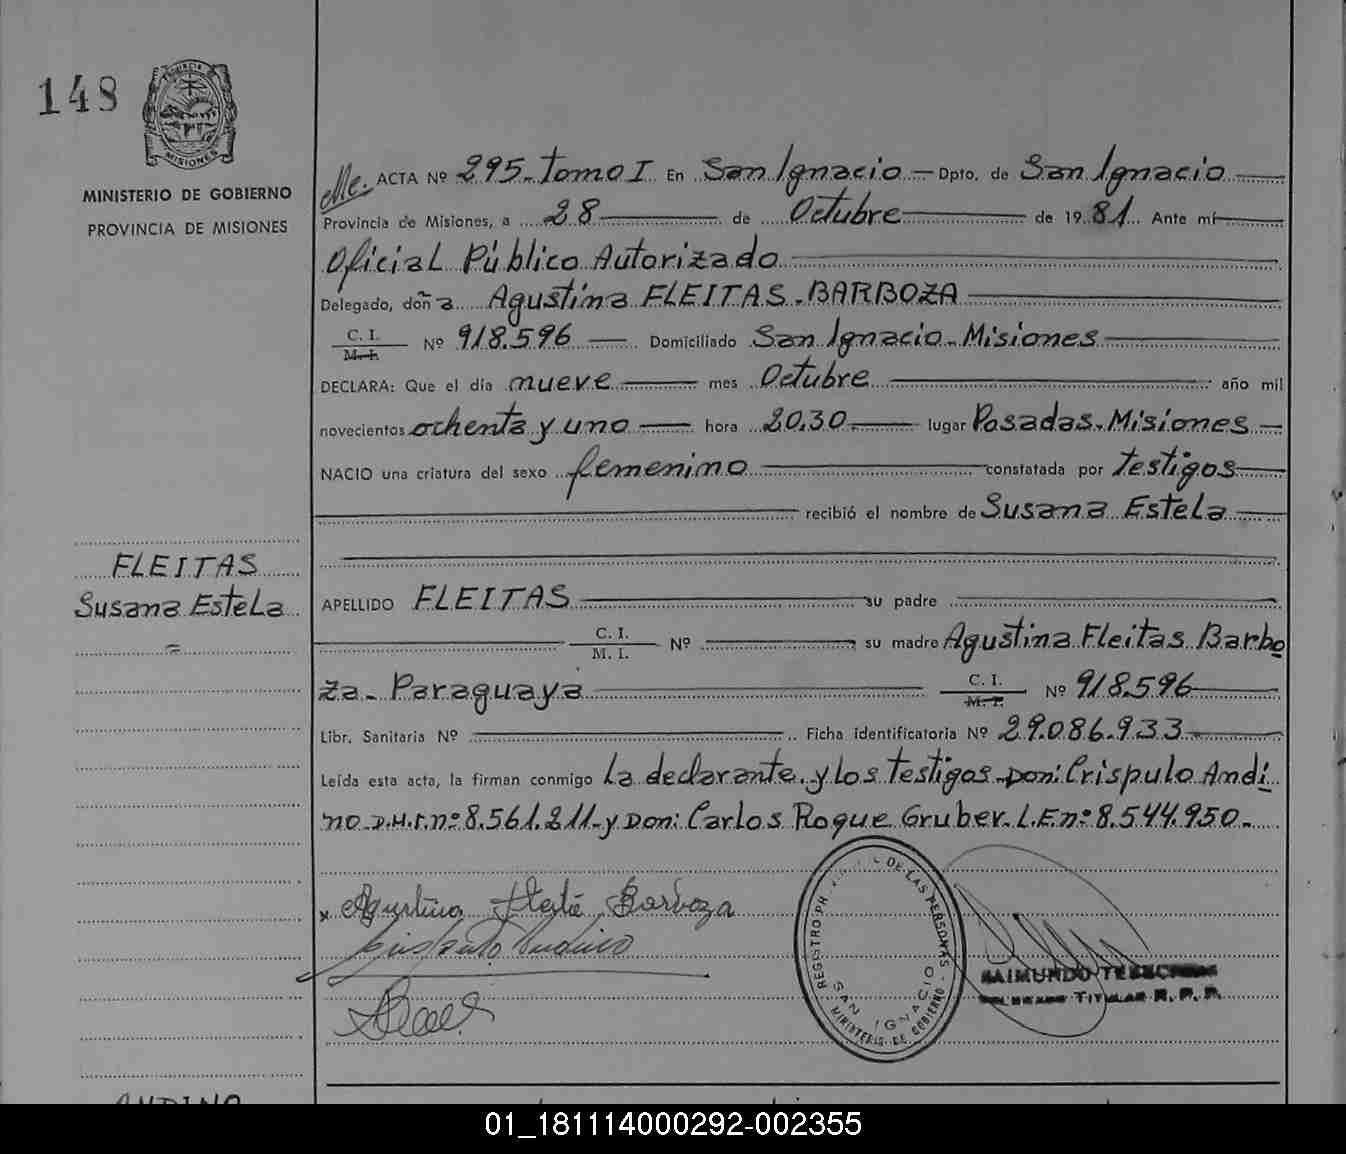 148
PROVINCIA
MISIONES
MINISTERIO DE GOBIERNO
PROVINCIA DE MISIONES
FLEITAS
Susana Estela
=
ACTA Nº 295-Tomo I En San Ignacio — Dpto. de San Ignacio
Provincia de Misiones, a 28 de Octubre de 1981 Ante mí
Oficial Público Autorizado
Delegado, doña Agustina FLEITAS-BARBOZA
C. I.
M. I. Nº 918.596 — Domiciliado San Ignacio-Misiones
DECLARA: Que el día nueve mes Octubre año mil
novecientos ochenta y uno — hora 20,30 — lugar Posadas-Misiones —
NACIO una criatura del sexo femenino constatada por testigos
recibió el nombre de Susana Estela
APELLIDO FLEITAS su padre
C. I.
M. I. Nº su madre Agustina Fleitas Barbo
za- Paraguaya C. I.
M. I. Nº 918.596
Libr. Sanitaria Nº Ficha Identificatoria Nº 29.086.933
Leída esta acta, la firman conmigo la declarante y los testigos-Don: Crispulo Andi
no D.M.I.nº 8.561.211-y Don: Carlos Roque Gruber-L.E nº 8.544.950-
x Agustina Fleita Barboza
REGISTRO DE LAS PERSONAS
SAN IGNACIO
MINISTERIO DE GOBIERNO
RAIMUNDO
TITULAR R. P. P.
ANDINO
01_181114000292-002355